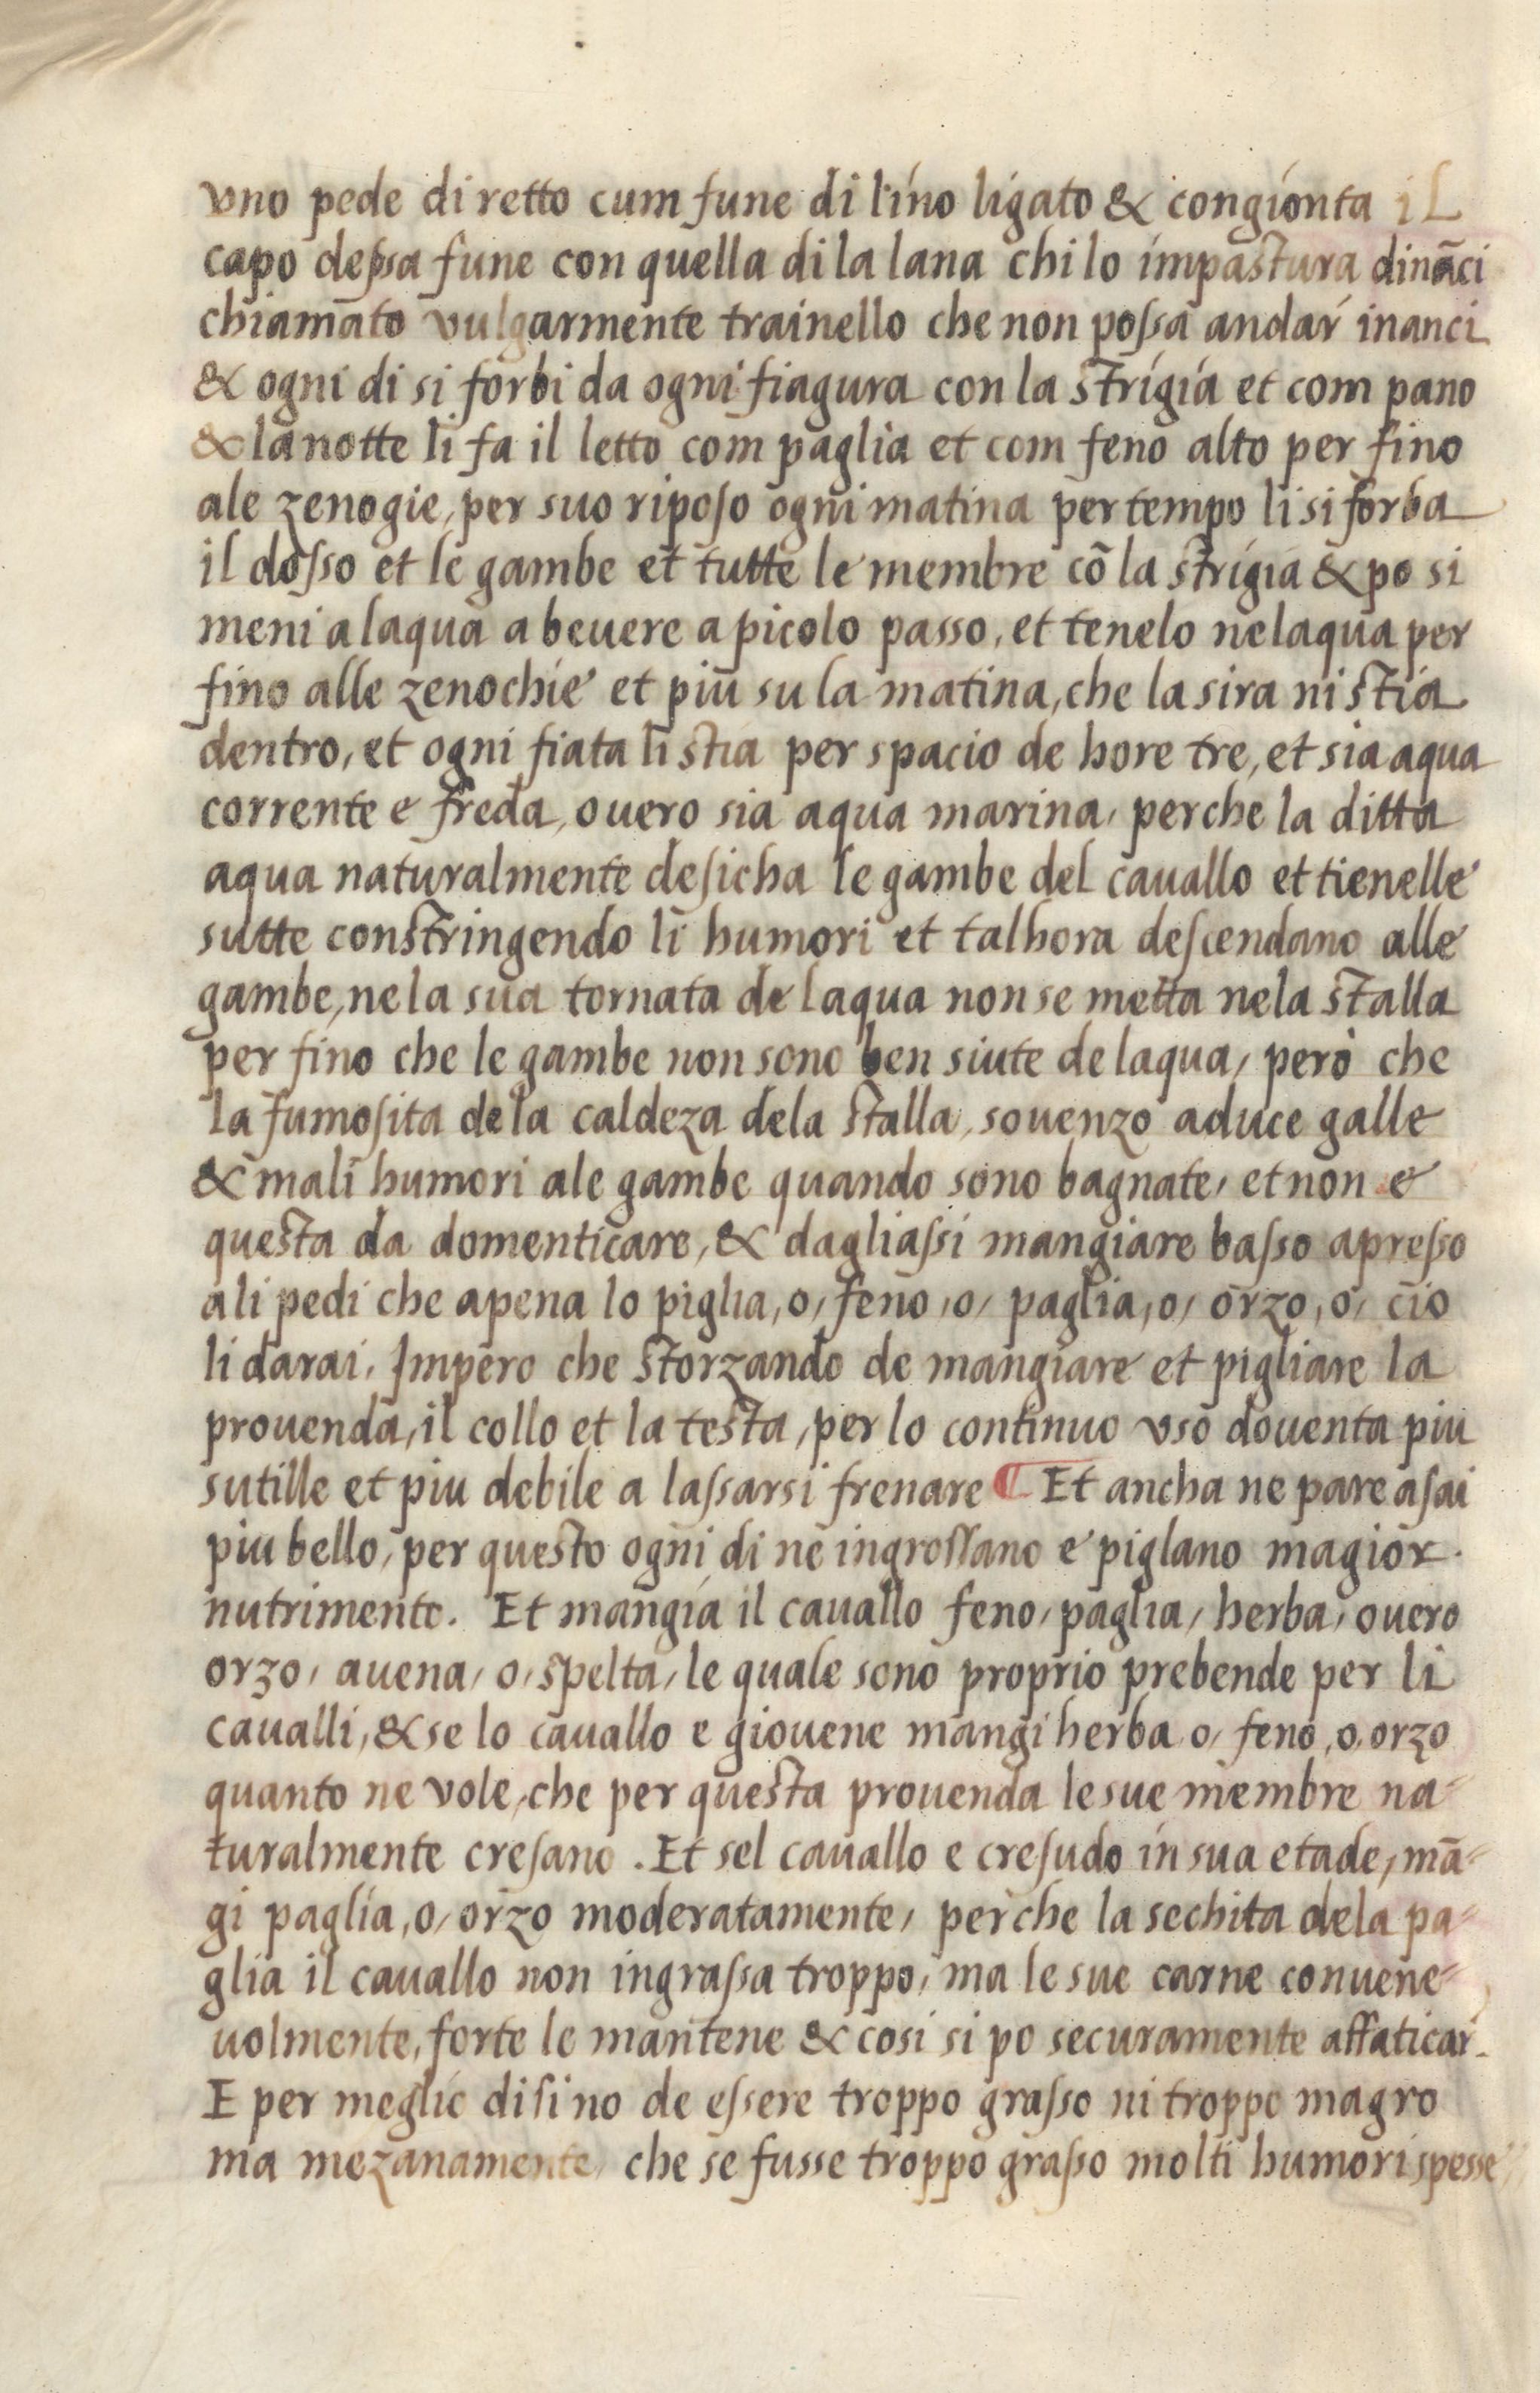 vno pede di retto cum fune di lino ligato & congionta il
capo deßa fune con quella di la lana chi lo impastura dinãci
chiamato vulgarmente trainello che non poſsa andar inanci
& ogni di si forbi da ogni fiagura con la strigia et com pano
& la notte li fa il letto com paglia et com feno alto per fino
ale zenogie, per suo ripoſo ogni matina per tempo li si forba
il doſso et le gambe et tutte le membre cõ la strigia & po si
meni alaqua a beuere a picolo passo, et tenelo nelaqua per
fino alle zenochie et piu su la matina, che la sira ni stia
dentro, et ogni fiata li stia per spacio de hore tre, et sia aqua
corrente e freda, ouero sia aqua marina, perche la ditta
aqua naturalmente deſicha le gambe del cauallo et tienelle
sutte constringendo li humori et talhora deſcendano alle
gambe, nela sua tornata de laqua non se metta nela stalla
per fino che le gambe non sono ben siute de laqua, però che
la fumoſita dela caldeza dela stalla, souenzo aduce galle
& mali humori ale gambe quando sono bagnate, et non e
questa da domenticare, & dagliaſsi mangiare baſso apreſso
ali pedi che apena lo piglia, o, feno, o, paglia, o, orzo, o, cio
li darai, Impero che storzando de mangiare et pigliare la
prouenda, il collo et la testa, per lo continuo vso douenta piu
sutille et piu debile a laſsarsi frenare ¶ Et ancha ne pare aſai
piu bello, per questo ogni di ne ingroſſano e piglano magior.
nutrimento. Et mangia il cauallo feno, paglia, herba, ouero
orzo, auena, o, spelta, le quale sono proprio prebende per li
caualli, & se lo cauallo e giouene mangi herba o, feno, o, orzo
quanto ne vole, che per questa prouenda le sue membre na-
turalmente creſano. Et sel cauallo e creſudo in sua etade, mã-
gi paglia, o, orzo moderatamente, perche la sechita dela pa-
glia il cauallo non ingraſsa troppo, ma le sue carne conuene-
uolmente, forte le mantene & cosi si po securamente affaticar.
E per meglio diſino de eſsere troppo graſso ni troppo magro
ma mezanamente, che se fusse troppo graſso molti humori spesse